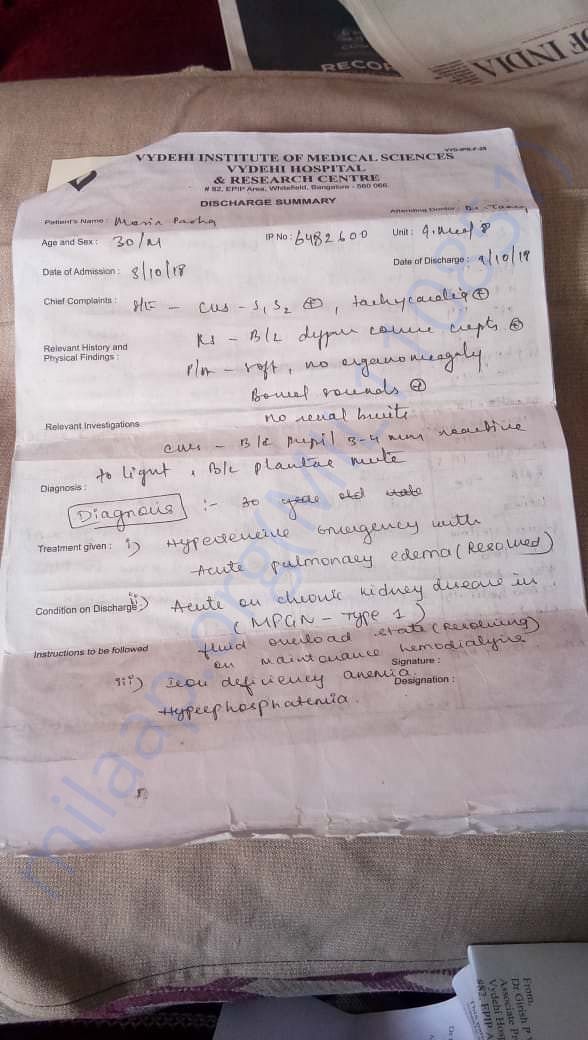 RECOR
OF INDIA
VYD-IPS-F-28
VYDEHI INSTITUTE OF MEDICAL SCIENCES
VYDEHI HOSPITAL
& RESEARCH CENTRE
# 82, EPIP Area, Whitefield, Bangalore - 560 066.
DISCHARGE SUMMARY
Patient's Name : Pasha Attending Doctor : Dr
Age and Sex : 30/M IP No : 6482600 Unit : G. Med 8
Date of Admission : 3/10/18 Date of Discharge : 9/10/18
Chief Complaints : S/E - CVS - S1 S2 ⊕, tachycardia ⊕
RS - B/L coarse crepts ⊕
Relevant History and
Physical Findings :
P/A - soft, no organomegaly
Bowel sounds ⊕
no renal bruits
Relevant Investigations
CNS - B/L pupil 3-4 mm reactive
to light, B/L plantar mute
Diagnosis :
Diagnosis :- 30 year old male
Treatment given : i) Hypertensive emergency with
Acute pulmonary edema (Resolved)
Condition on Discharge : ii) Acute on chronic kidney disease in
(MPGN - Type 1)
Instructions to be followed fluid overload state (Resolving)
on maintanance hemodialysis
Signature :
iii) Iron deficiency anemia.
Designation :
Hyperphosphatemia.
milaap.org(MIL_110837)
From,
Dr Girish P V
Associate Pr
Vydehi Hosp
#82, EPIP A